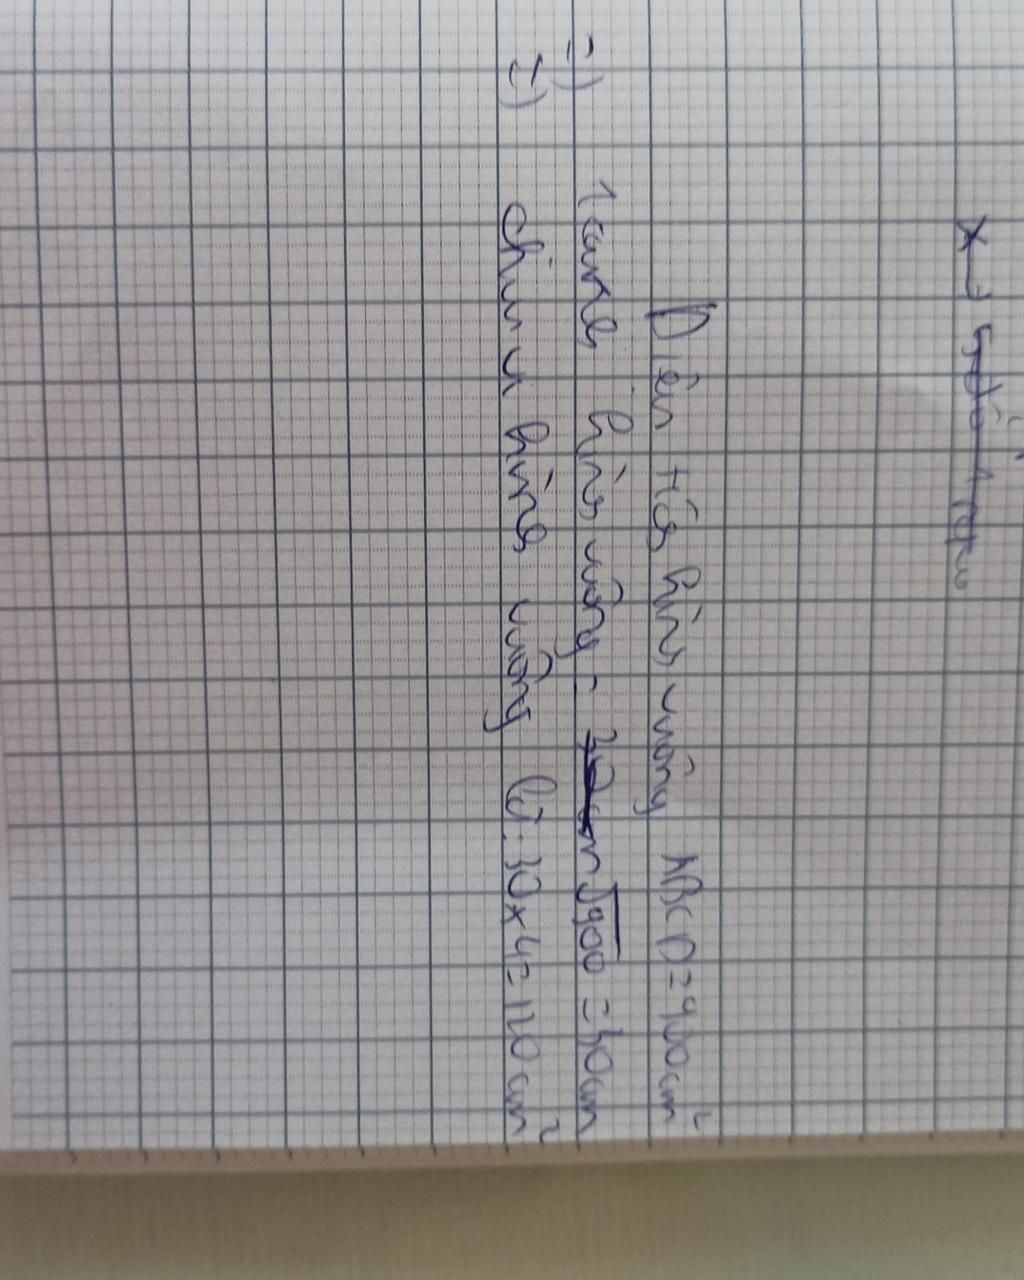 Diện tích hình vuông ABCD = 900cm²
=) 1 canh hình vuông = √900 = 30cm
=) chu vi hình vuông là: 30 x 4 = 120cm²